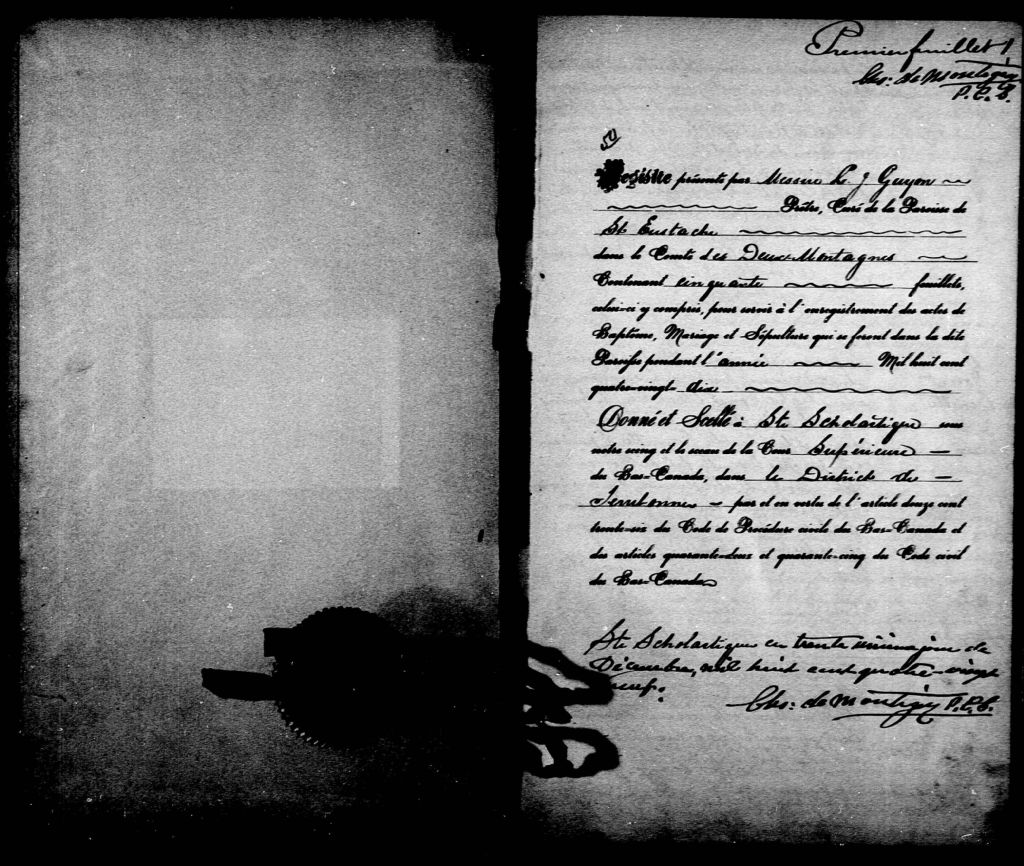 Premier feuillet 1
Chs: de Montigny
P.C.S.
50
Registre présenté par Messire L. J Guyon
Prêtre, Curé de la Paroisse de
St Eustache
dans le Comté des Deux-Montagnes
Contenant cinquante feuillets,
celui-ci y compris, pour servir à l'enregistrement des actes de
Baptême, Mariage et Sépulture qui se feront dans la dite
Paroisse pendant l'année Mil huit cent
quatre-vingt-dix
Donné et Scellé à Ste Scholastique sous
notre seing et le sceau de la Cour Supérieure
du Bas-Canada, dans le District de
Terrebonne par et en vertu de l'article douze cent
trente-six du Code de Procédure civile du Bas-Canada et
des articles quarante-deux et quarante-cinq du Code civil
du Bas-Canada
Ste Scholastique ce trente jour de
Décembre, mil huit cent quatre-vingt
neuf.
Chs: de Montigny P.C.S.